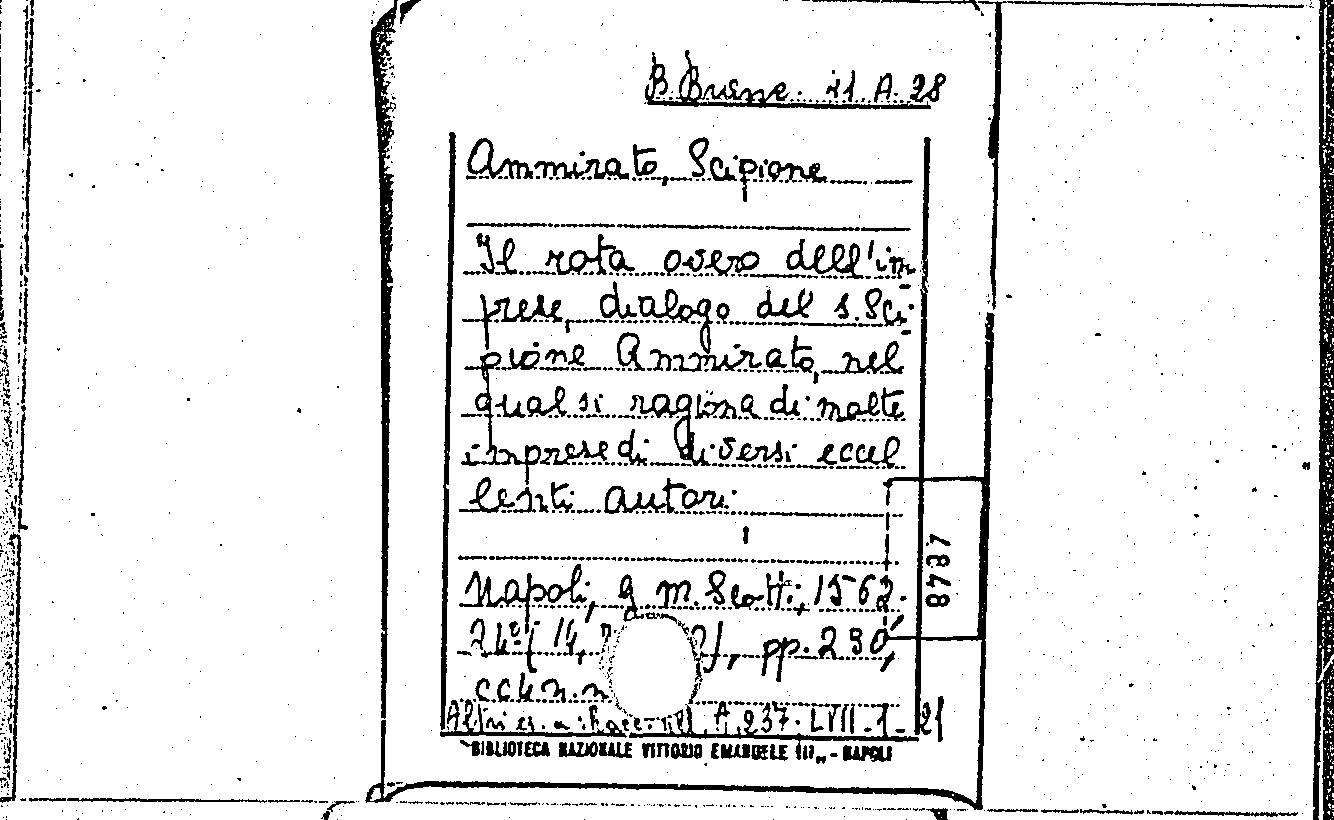 B. Branc. 21. A. 28
Ammirato, Scipione
Il rota overo dell'im-
prese, dialogo del s. Sci-
pione Ammirato, nel
qual si ragiona di molte
imprese di diversi eccel
lenti autori.
Napoli, g. m. Scotti, 1562.
24° (14, pp. 230,
cc 4 n. n
Altri es. a: Racc. A. 237. LVII-1-21
"BIBLIOTECA NAZIONALE VITTORIO EMANUELE III" - NAPOLI
7848